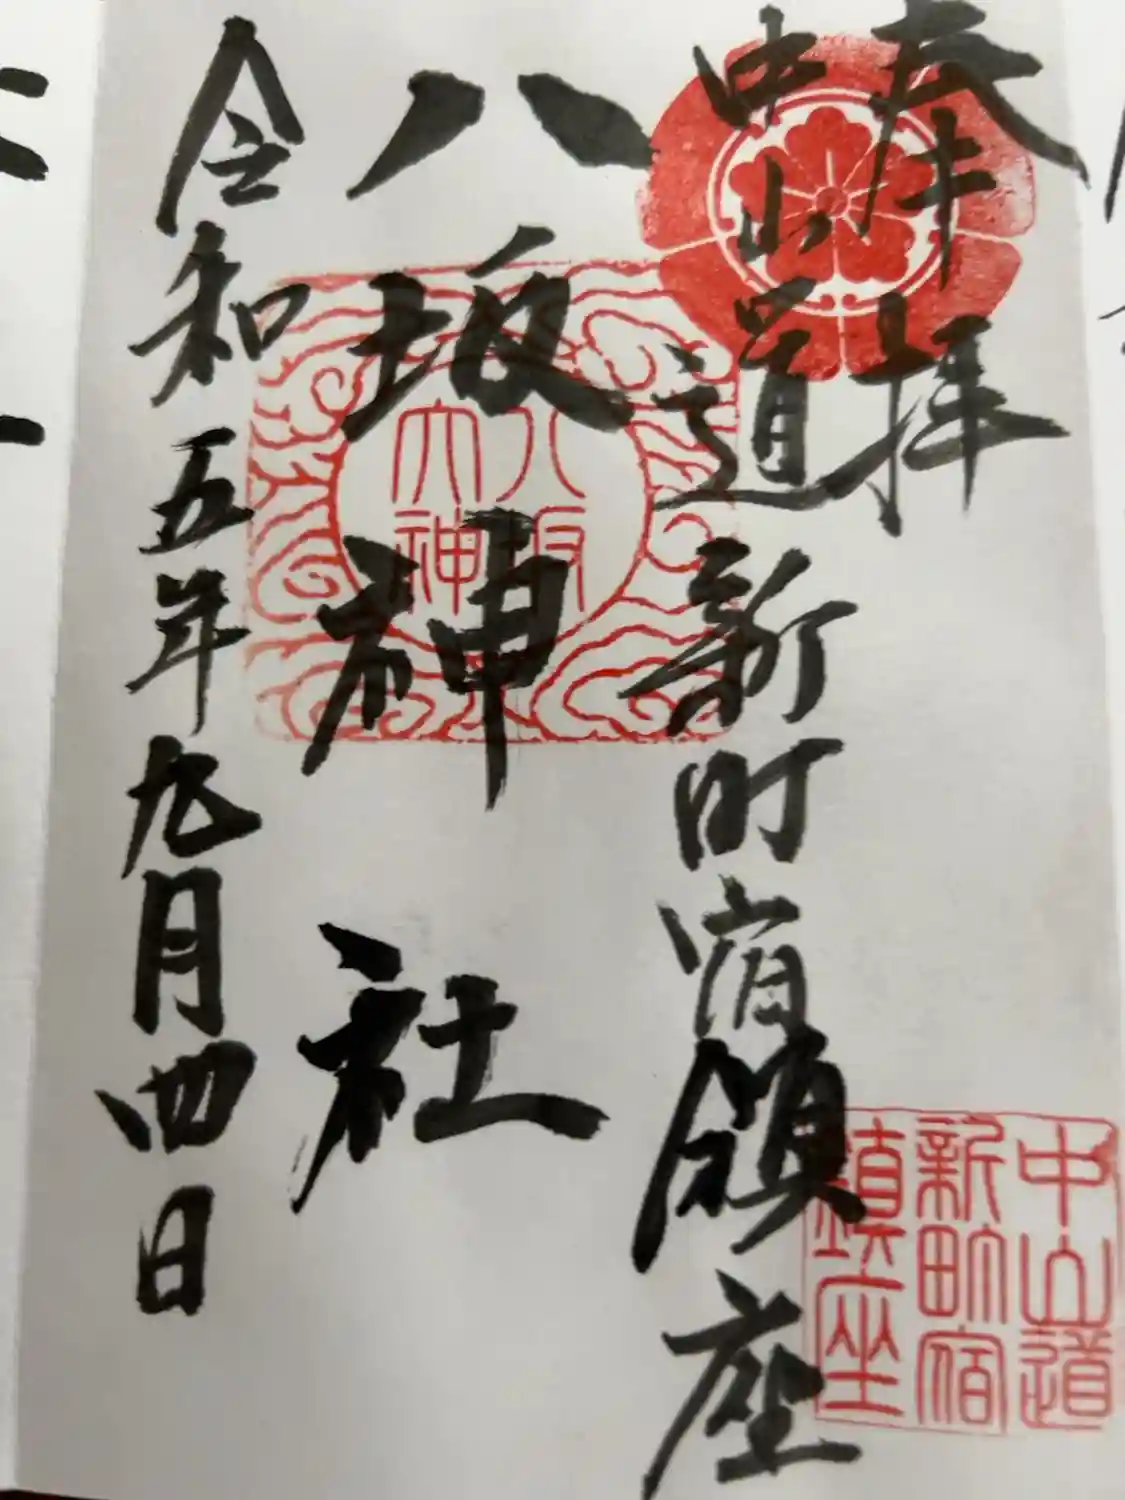 奉拝
中山道新町宿鎮座
八坂神社
令和五年九月四日
八坂
大神
中山道
新町宿
鎮座